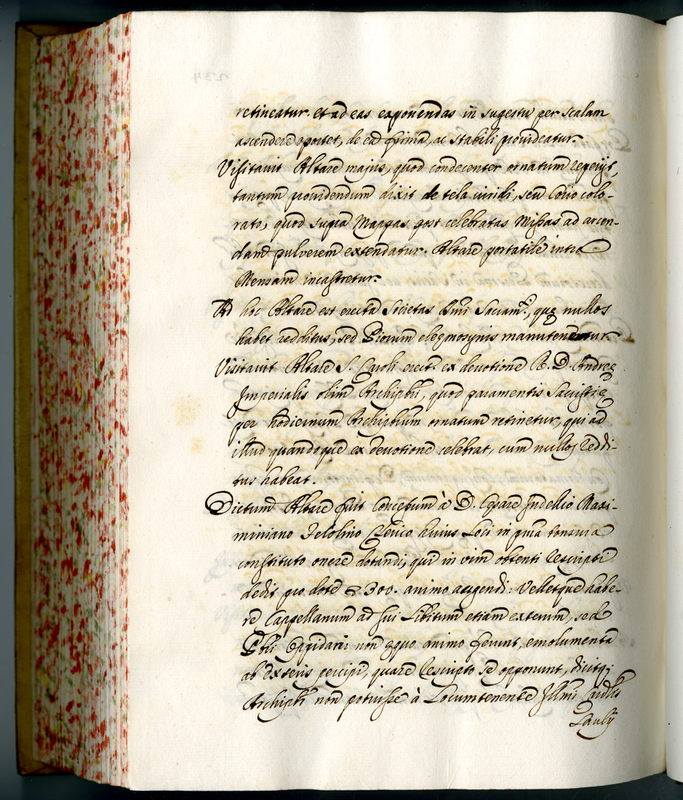 retineatur et ad eas exponendas in sugestu per scalam
ascendere oportet, de ea firma, ac stabili provideatur.
Visitavit Altare majus, quod condecenter ornatum reperijt,
tantum providendum dixit de tela viridi, seu Corio colo-
rato, quod supra Mappas post celebratas Missas ad arcen-
dam pulverem extendatur. Altare portatile intra
Mensam incastretur.
Ad hoc Altare est erecta Societas Smi Sacram.ti, quę nullos
habet redditus, sed Piorum eleęmosynis manutenetur.
Visitavit Altare S. Caroli erect. ex devotione R. D. Andreę
Imperialis olim Archiptri, quod paramentis Sacristię
per hodiernum Archiptrum ornatum retinetur, qui ad
illud quandoque ex devotione celebrat, cum nullos reddi-
tus habeat.
Dictum Altare fuit concessum à D. Cesare Maxi-
miniano Clerico huius Loci in prima tonsura
constituto onere dotandi, qui in vim obtenti rescripti
dedit pro dote 300. animo augendi. Velletque habe-
re Cappellanum ad sui libitum etiam exterum, sed
Ptri Oppidani non ęquo animo ferunt, emolumenta
ab exteris percipi, quare rescripto se opponunt,
Archiptr non potuisse à Locumtenente Illmi Cardlis
Paulij